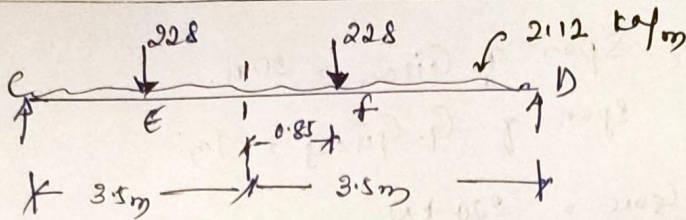 228 228 2.12 kN/m
C E F D
0.85
3.5m 3.5m